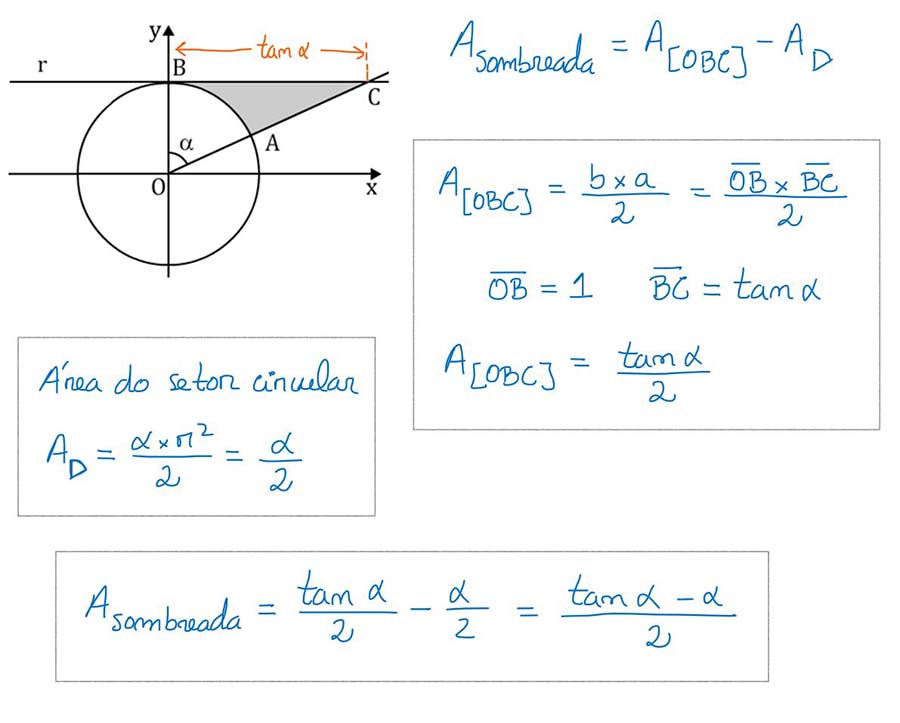 y
tan α
r
B
C
α
A
O
x
A sombreada = A[OBC] - A_D
A[OBC] = b × a / 2 = OB̅ × BC̅ / 2
OB̅ = 1 BC̅ = tan α
A[OBC] = tan α / 2
Área do setor circular
A_D = α × r² / 2 = α / 2
A sombreada = tan α / 2 - α / 2 = tan α - α / 2